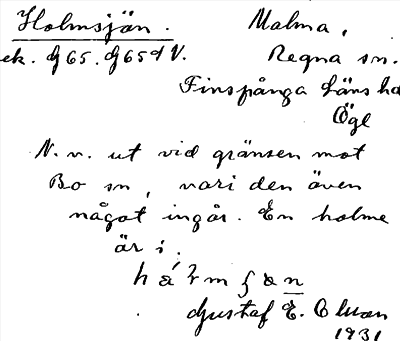 Holmsjön. Malma,
ek. G 65. G 65 d V. Regna sn.
Finspånga läns hd
Ögl
N. v. ut vid gränsen mot
Bo sn, vari den även
något ingår. En holme
är i.
Gustaf E.
1931